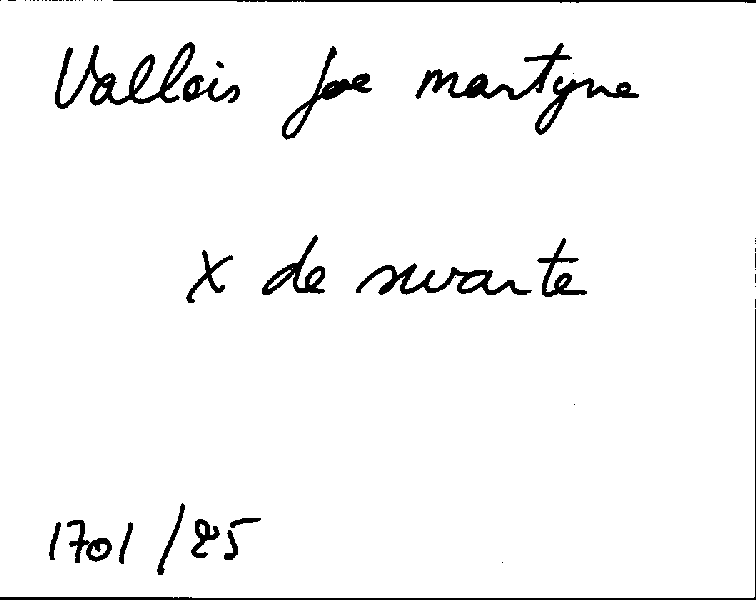 Vallois Joe martyne
x de swarte
1701 / 25